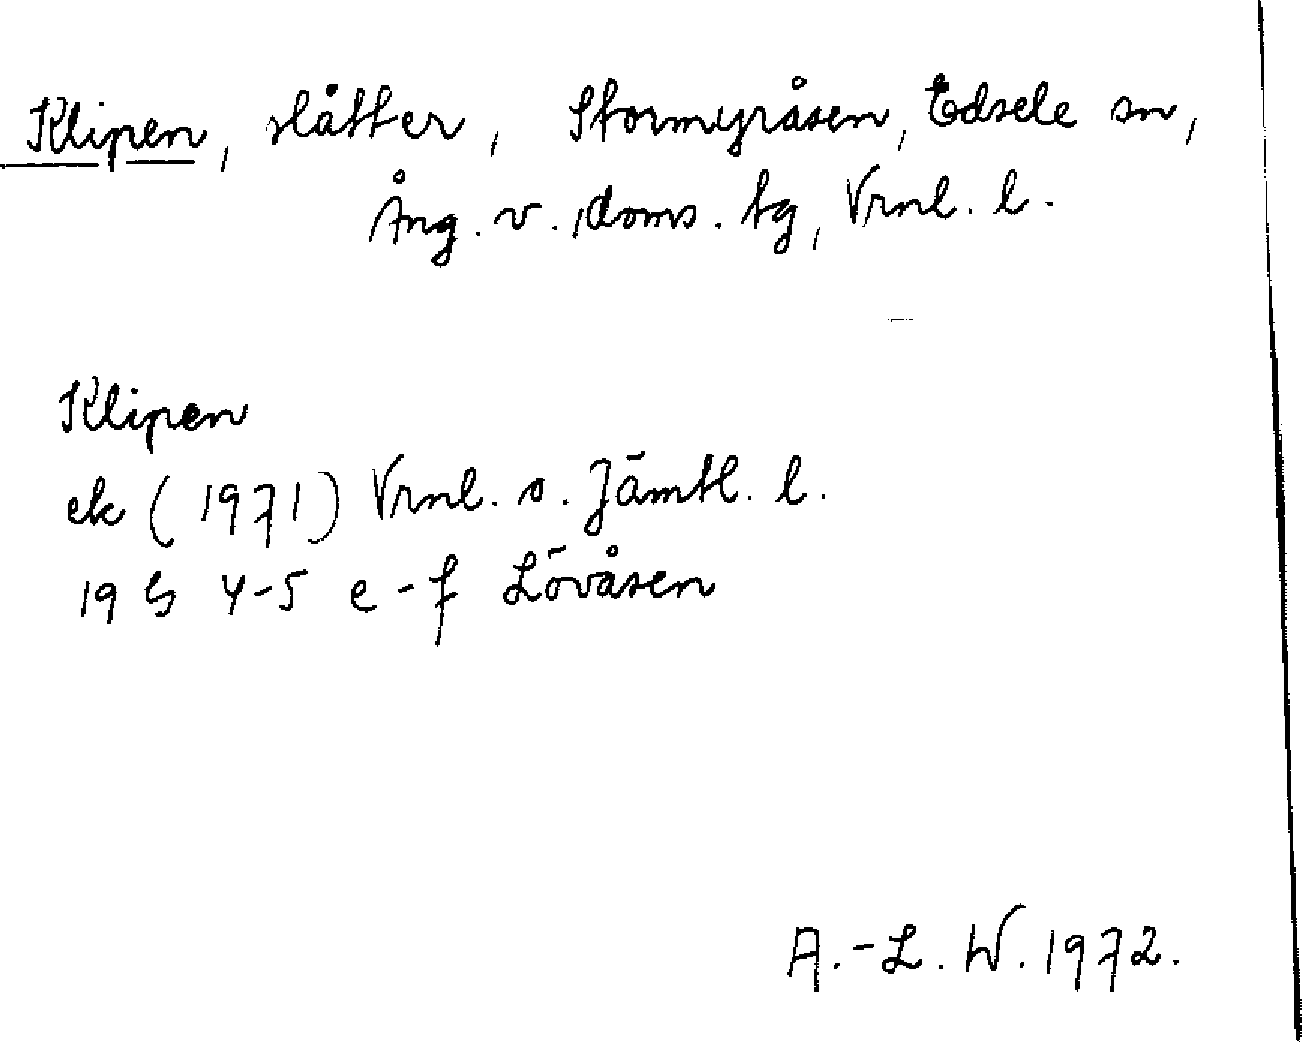 Klipen, slåtter, Stormyråsen, Edsele sn,
Ång. v. doms. tg, Vrnl. l.
Klipen
ek (1971) Vrnl. o. Jämtl. l.
19 G 4-5 e-f Lövåsen
A.-L. W. 1972.